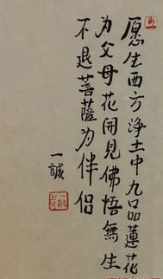 愿生西方淨土中九品蓮花
为父母花開見佛悟無生
不退菩薩为伴侣
一誠